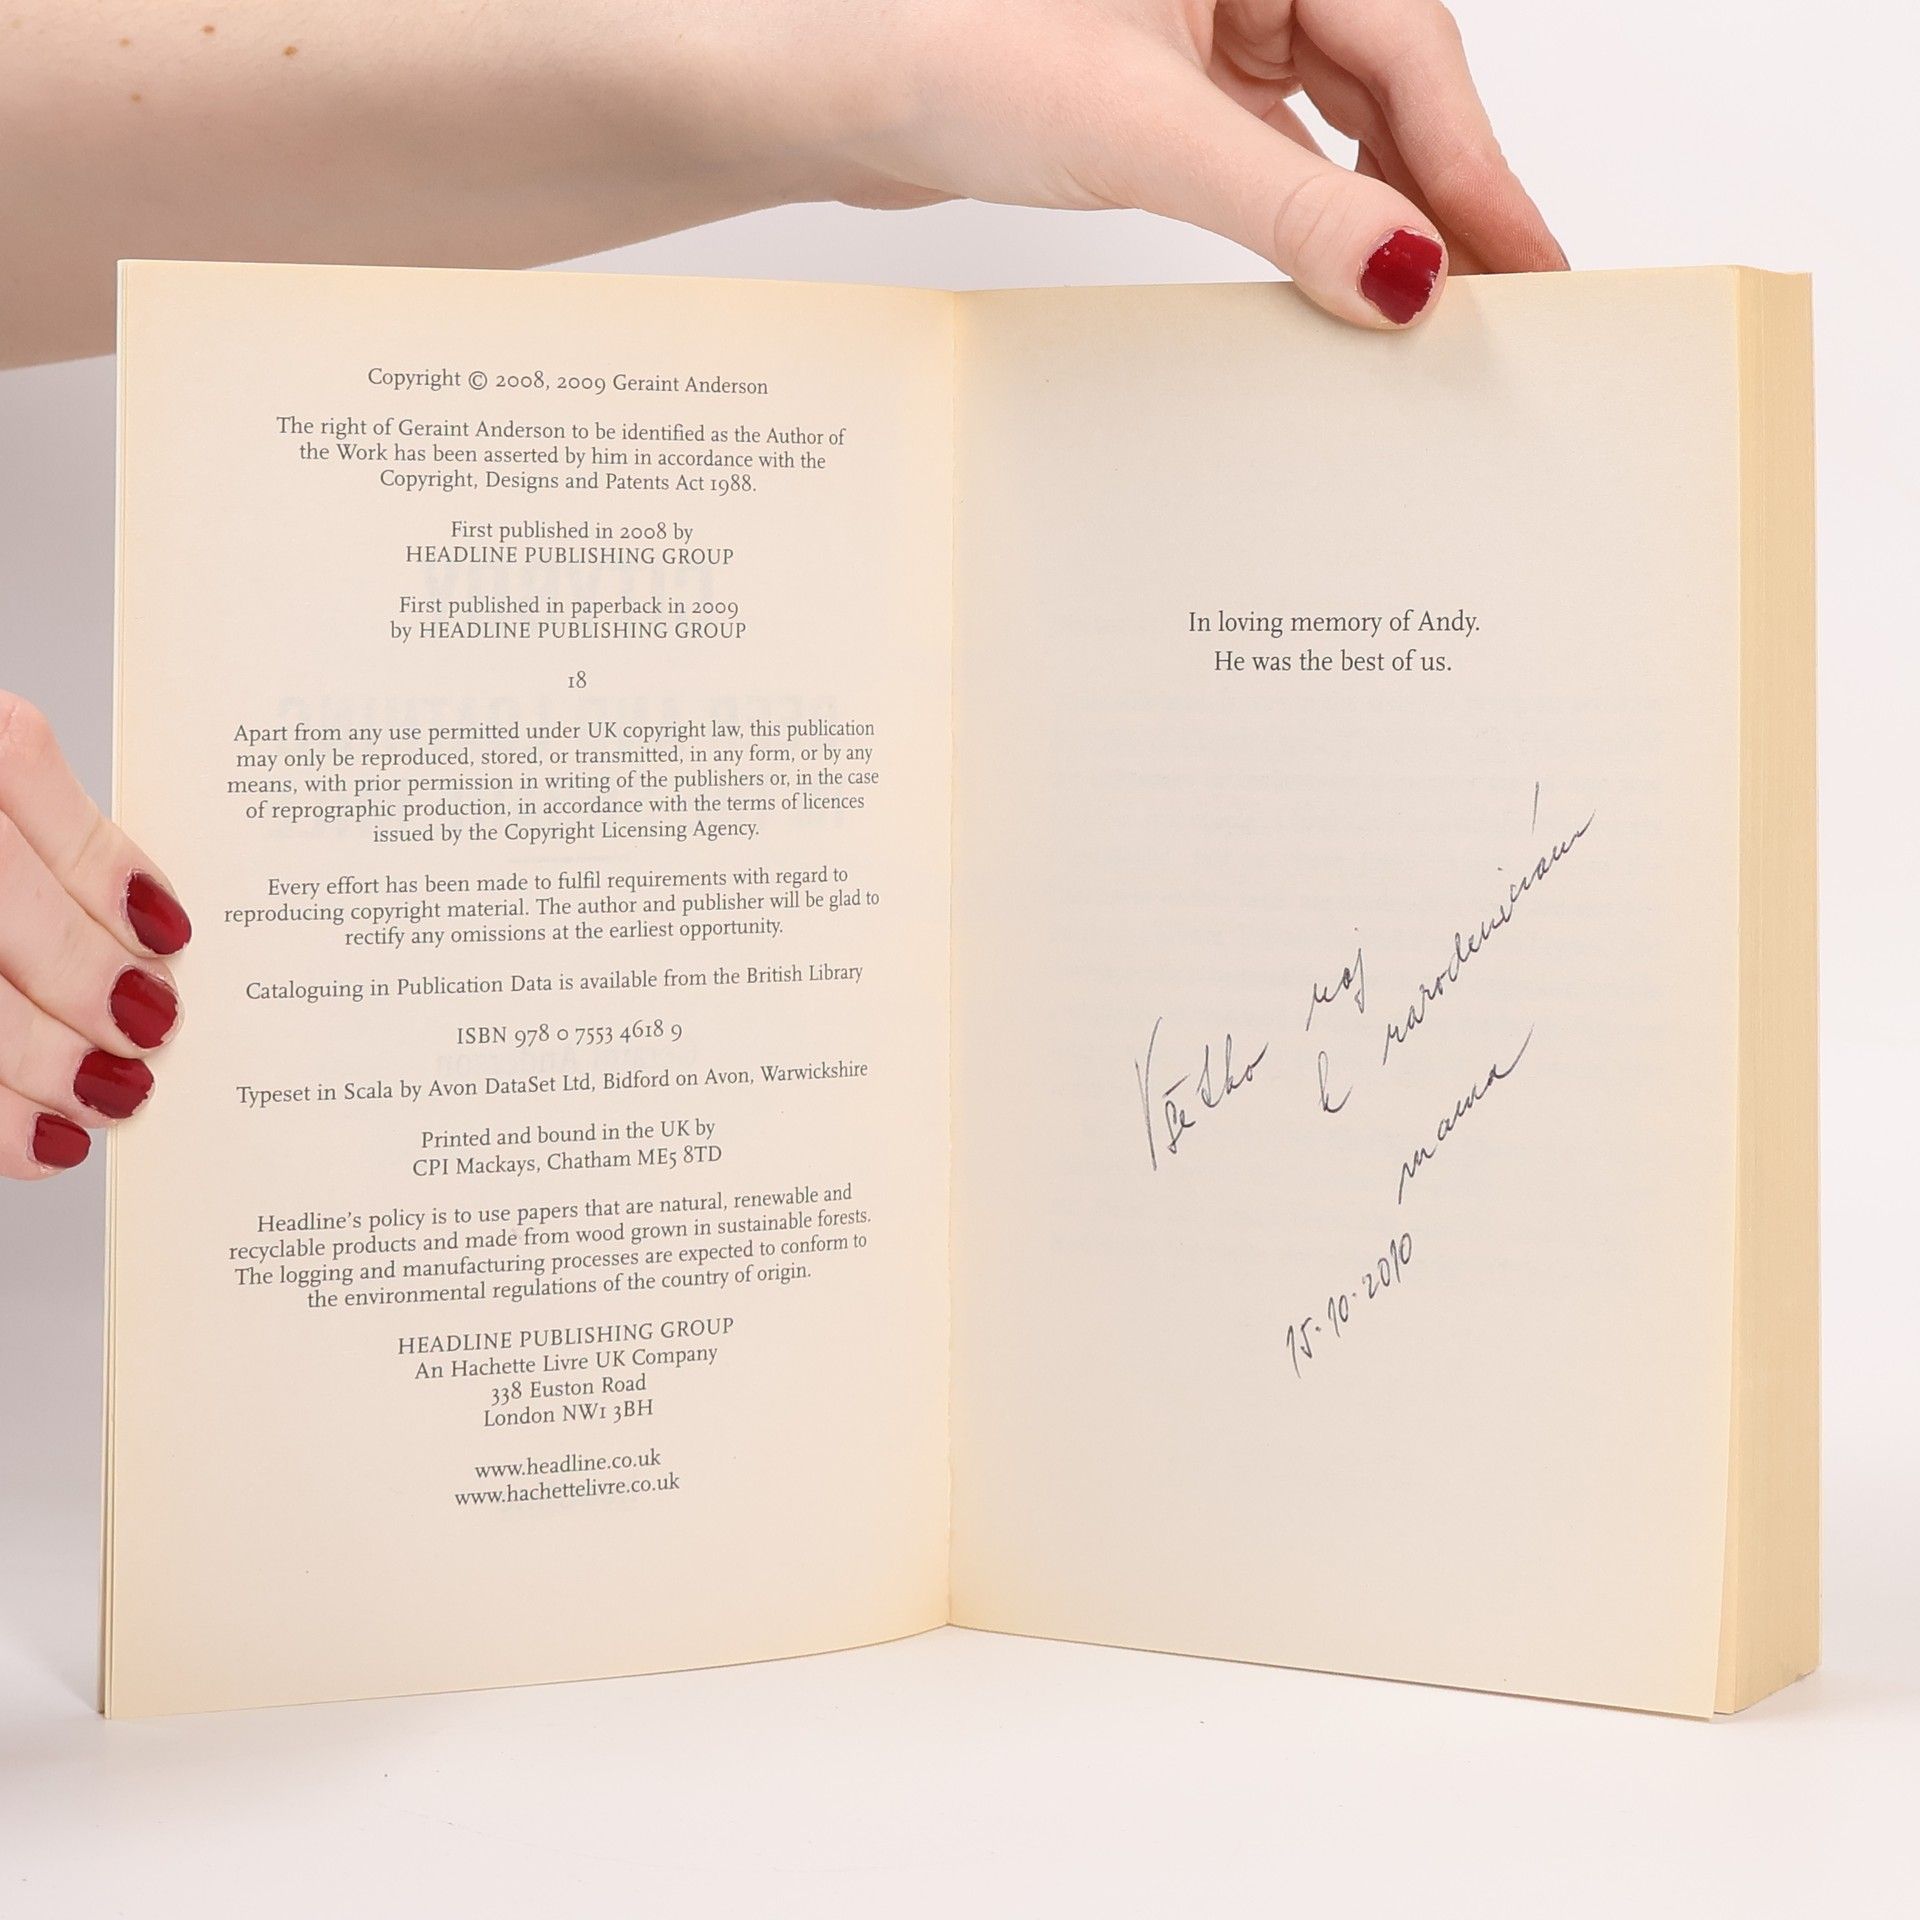 Copyright © 2008, 2009 Geraint Anderson
The right of Geraint Anderson to be identified as the Author of
the Work has been asserted by him in accordance with the
Copyright, Designs and Patents Act 1988.
First published in 2008 by
HEADLINE PUBLISHING GROUP
First published in paperback in 2009
by HEADLINE PUBLISHING GROUP
18
Apart from any use permitted under UK copyright law, this publication
may only be reproduced, stored, or transmitted, in any form, or by any
means, with prior permission in writing of the publishers or, in the case
of reprographic production, in accordance with the terms of licences
issued by the Copyright Licensing Agency.
Every effort has been made to fulfil requirements with regard to
reproducing copyright material. The author and publisher will be glad to
rectify any omissions at the earliest opportunity.
Cataloguing in Publication Data is available from the British Library
ISBN 978 0 7553 4618 9
Typeset in Scala by Avon DataSet Ltd, Bidford on Avon, Warwickshire
Printed and bound in the UK by
CPI Mackays, Chatham ME5 8TD
Headline's policy is to use papers that are natural, renewable and
recyclable products and made from wood grown in sustainable forests.
The logging and manufacturing processes are expected to conform to
the environmental regulations of the country of origin.
HEADLINE PUBLISHING GROUP
An Hachette Livre UK Company
338 Euston Road
London NW1 3BH
www.headline.co.uk
www.hachettelivre.co.uk
In loving memory of Andy.
He was the best of us.
Všetko naj
k narodeninám
mama
15.10.2010